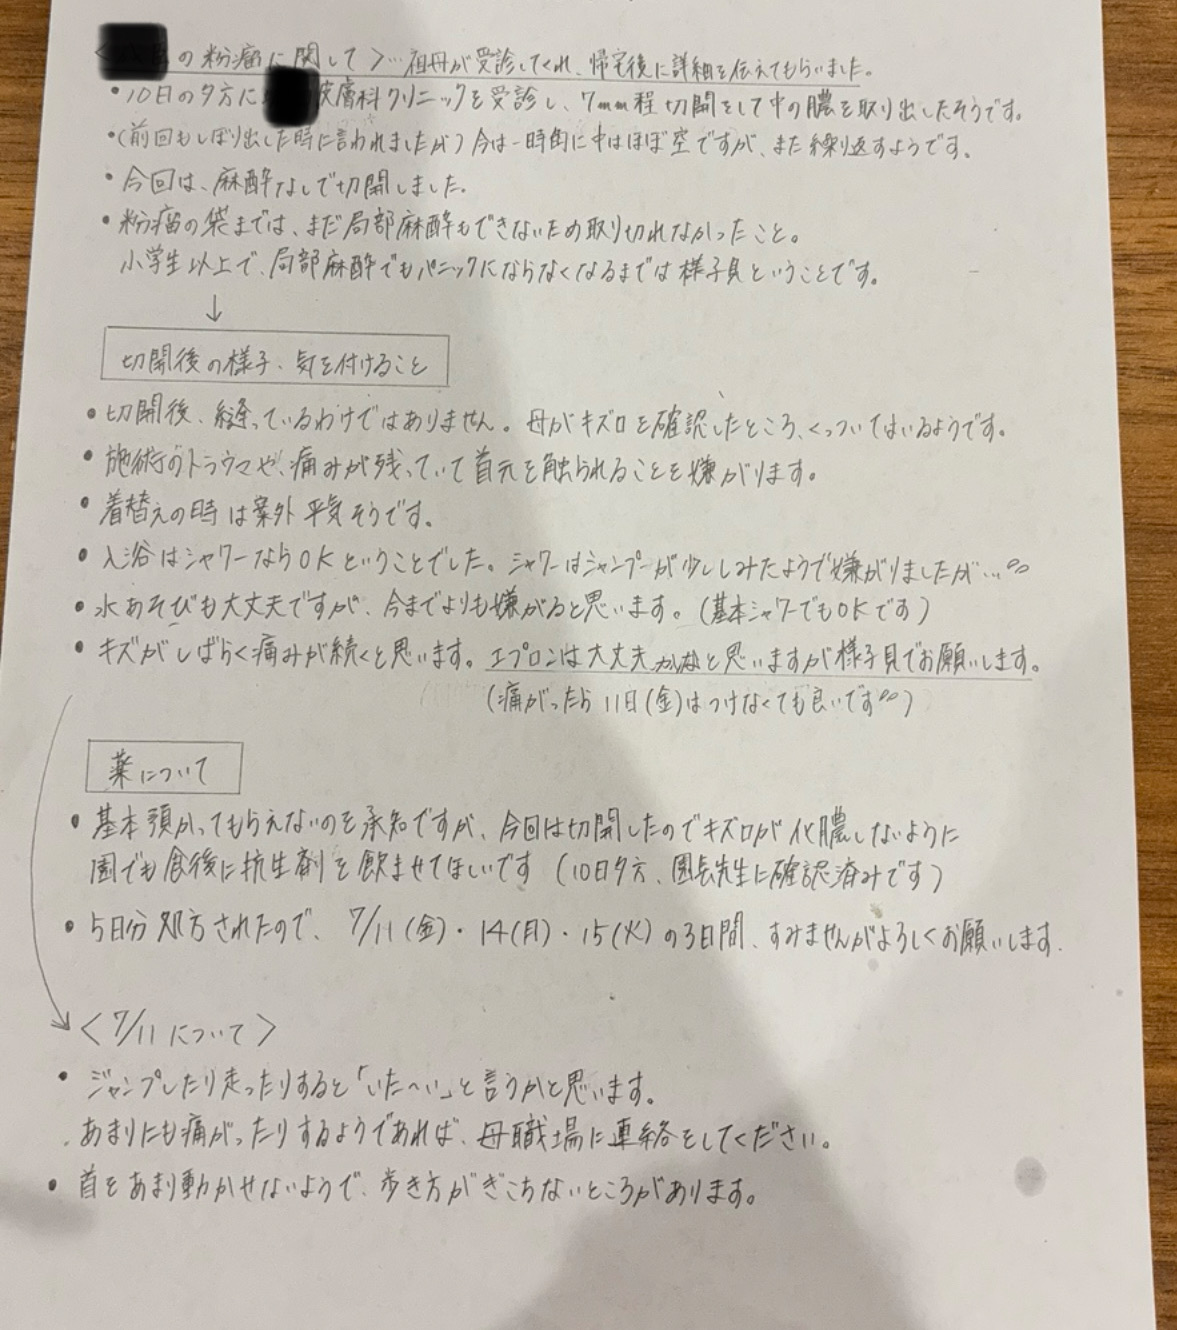 ＜の粉瘤に関して＞…祖母が受診してくれ、帰宅後に詳細を伝えてもらいました。
・10日の夕方に皮膚科クリニックを受診し、7mm程切開をして中の膿を取り出したそうです。
・(前回もしぼり出した時に言われましたが)今は一時的に中はほぼ空ですが、また繰り返すようです。
・今回は、麻酔なしで切開しました。
・粉瘤の袋までは、まだ局部麻酔もできないため取り切れなかったこと。
小学生以上で、局部麻酔でもパニックにならなくなるまでは様子見ということです。
↓
切開後の様子、気を付けること
・切開後、縫っているわけではありません。母がキズ口を確認したところ、くっついてはいるようです。
・施術のトラウマや、痛みが残っていて首元を触られることを嫌がります。
・着替えの時は案外平気そうです。
・入浴はシャワーならOKということでした。シャワーはシャンプーが少ししみたようで嫌がりましたが…。。
・水あそびも大丈夫ですが、今までよりも嫌がると思います。(基本シャワーでもOKです)
・キズがしばらく痛みが続くと思います。エプロンは大丈夫かなと思いますが様子見でお願いします。
(痛がったら11日(金)はつけなくても良いです。。)
薬について
・基本預かってもらえないのを承知ですが、今回は切開したのでキズ口が化膿しないように
園でも食後に抗生剤を飲ませてほしいです(10日夕方、園長先生に確認済みです)
・5日分処方されたので、7/11(金)・14(月)・15(火)の3日間、すみませんがよろしくお願いします.
＜7/11について＞
・ジャンプしたり走ったりすると「いた〜い」と言うかと思います。
あまりにも痛がったりするようであれば、母職場に連絡をしてください。
・首をあまり動かせないようで、歩き方がぎこちないところがあります。